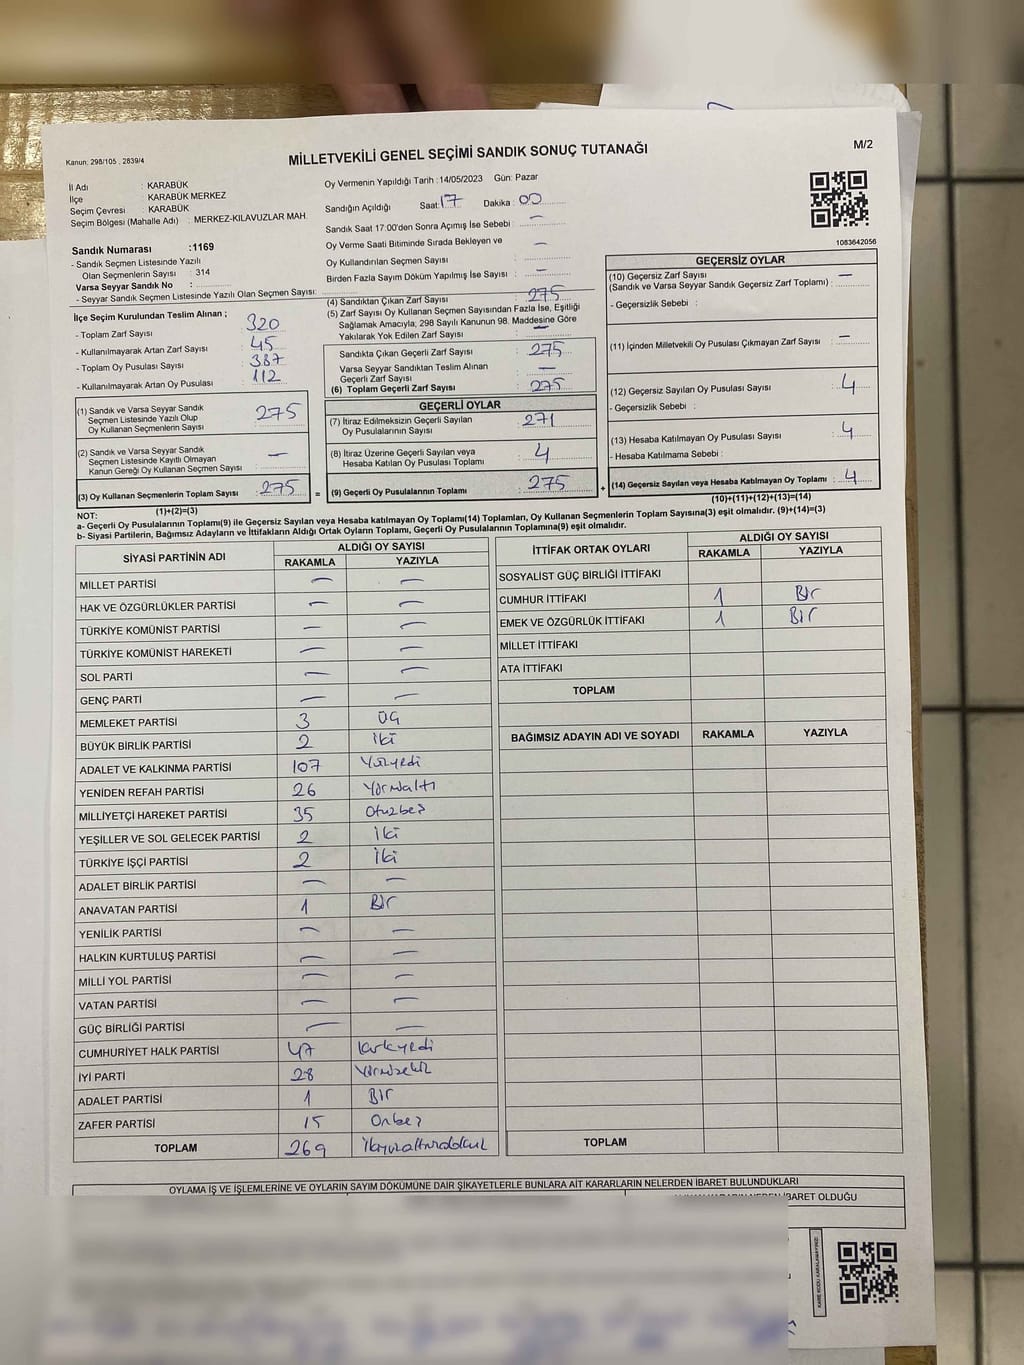 M/2
Kanun: 298/105 , 2839/4
MİLLETVEKİLİ GENEL SEÇİMİ SANDIK SONUÇ TUTANAĞI
İl Adı : KARABÜK
İlçe : KARABÜK MERKEZ
Seçim Çevresi : KARABÜK
Seçim Bölgesi (Mahalle Adı) : MERKEZ-KILAVUZLAR MAH.
Sandık Numarası :1169
- Sandık Seçmen Listesinde Yazılı
Olan Seçmenlerin Sayısı : 314
Varsa Seyyar Sandık No :
- Seyyar Sandık Seçmen Listesinde Yazılı Olan Seçmen Sayısı:
İlçe Seçim Kurulundan Teslim Alınan ;
- Toplam Zarf Sayısı : 320
- Kullanılmayarak Artan Zarf Sayısı : 45
- Toplam Oy Pusulası Sayısı : 387
- Kullanılmayarak Artan Oy Pusulası : 112
(1) Sandık ve Varsa Seyyar Sandık
Seçmen Listesinde Yazılı Olup
Oy Kullanan Seçmenlerin Sayısı : 275
(2) Sandık ve Varsa Seyyar Sandık
Seçmen Listesinde Kayıtlı Olmayan
Kanun Gereği Oy Kullanan Seçmen Sayısı : —
(3) Oy Kullanan Seçmenlerin Toplam Sayısı : 275
(1)+(2)=(3)
Oy Vermenin Yapıldığı Tarih :14/05/2023 Gün: Pazar
Sandığın Açıldığı Saat: 17 Dakika : 00
Sandık Saat 17:00'den Sonra Açımış İse Sebebi : —
Oy Verme Saati Bitiminde Sırada Bekleyen ve
Oy Kullandırılan Seçmen Sayısı : —
Birden Fazla Sayım Döküm Yapılmış İse Sayısı : —
(4) Sandıktan Çıkan Zarf Sayısı : 275
(5) Zarf Sayısı Oy Kullanan Seçmen Sayısından Fazla İse, Eşitliği
Sağlamak Amacıyla, 298 Sayılı Kanunun 98. Maddesine Göre
Yakılarak Yok Edilen Zarf Sayısı : —
Sandıkta Çıkan Geçerli Zarf Sayısı : 275
Varsa Seyyar Sandıktan Teslim Alınan
Geçerli Zarf Sayısı : —
(6) Toplam Geçerli Zarf Sayısı : 275
GEÇERLİ OYLAR
(7) İtiraz Edilmeksizin Geçerli Sayılan
Oy Pusulalarının Sayısı : 271
(8) İtiraz Üzerine Geçerli Sayılan veya
Hesaba Katılan Oy Pusulası Toplamı : 4
= (9) Geçerli Oy Pusulalarının Toplamı : 275 +
1083642056
GEÇERSİZ OYLAR
(10) Geçersiz Zarf Sayısı
(Sandık ve Varsa Seyyar Sandık Geçersiz Zarf Toplamı) : —
- Geçersizlik Sebebi :
(11) İçinden Milletvekili Oy Pusulası Çıkmayan Zarf Sayısı : —
(12) Geçersiz Sayılan Oy Pusulası Sayısı : 4
- Geçersizlik Sebebi :
(13) Hesaba Katılmayan Oy Pusulası Sayısı : 4
- Hesaba Katılmama Sebebi :
(14) Geçersiz Sayılan veya Hesaba Katılmayan Oy Toplamı : 4
(10)+(11)+(12)+(13)=(14)
NOT:
a- Geçerli Oy Pusulalarının Toplamı(9) ile Geçersiz Sayılan veya Hesaba katılmayan Oy Toplamı(14) Toplamları, Oy Kullanan Seçmenlerin Toplam Sayısına(3) eşit olmalıdır. (9)+(14)=(3)
b- Siyasi Partilerin, Bağımsız Adayların ve İttifakların Aldığı Ortak Oyların Toplamı, Geçerli Oy Pusulalarının Toplamına(9) eşit olmalıdır.
SİYASİ PARTİNİN ADI ALDIĞI OY SAYISI
RAKAMLA YAZIYLA
MİLLET PARTİSİ — —
HAK VE ÖZGÜRLÜKLER PARTİSİ — —
TÜRKİYE KOMÜNİST PARTİSİ — —
TÜRKİYE KOMÜNİST HAREKETİ — —
SOL PARTİ — —
GENÇ PARTİ — —
MEMLEKET PARTİSİ 3 ÜÇ
BÜYÜK BİRLİK PARTİSİ 2 iki
ADALET VE KALKINMA PARTİSİ 107 Yüzyedi
YENİDEN REFAH PARTİSİ 26 Yirmialtı
MİLLİYETÇİ HAREKET PARTİSİ 35 Otuzbeş
YEŞİLLER VE SOL GELECEK PARTİSİ 2 İki
TÜRKİYE İŞÇİ PARTİSİ 2 İki
ADALET BİRLİK PARTİSİ — —
ANAVATAN PARTİSİ 1 Bir
YENİLİK PARTİSİ — —
HALKIN KURTULUŞ PARTİSİ — —
MİLLİ YOL PARTİSİ — —
VATAN PARTİSİ — —
GÜÇ BİRLİĞİ PARTİSİ — —
CUMHURİYET HALK PARTİSİ 47 Kırkyedi
İYİ PARTİ 28 Yirmisekiz
ADALET PARTİSİ 1 Bir
ZAFER PARTİSİ 15 Onbeş
TOPLAM 269 ikiyüzaltmışdokuz
İTTİFAK ORTAK OYLARI ALDIĞI OY SAYISI
RAKAMLA YAZIYLA
SOSYALİST GÜÇ BİRLİĞİ İTTİFAKI
CUMHUR İTTİFAKI 1 Bir
EMEK VE ÖZGÜRLÜK İTTİFAKI 1 Bir
MİLLET İTTİFAKI
ATA İTTİFAKI
TOPLAM
BAĞIMSIZ ADAYIN ADI VE SOYADI RAKAMLA YAZIYLA
TOPLAM
OYLAMA İŞ VE İŞLEMLERİNE VE OYLARIN SAYIM DÖKÜMÜNE DAİR ŞİKAYETLERLE BUNLARA AİT KARARLARIN NELERDEN İBARET BULUNDUKLARI
İBARET OLDUĞU
KARE KODU KARALAMAYINIZ!